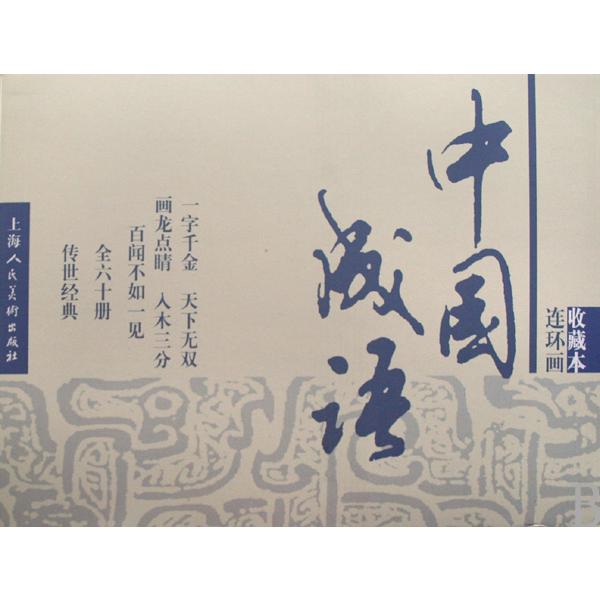 收藏本
连环画
中国
成语
一字千金 天下无双
画龙点睛 入木三分
百闻不如一见
全六十册
传世经典
上海人民美術出版社
B